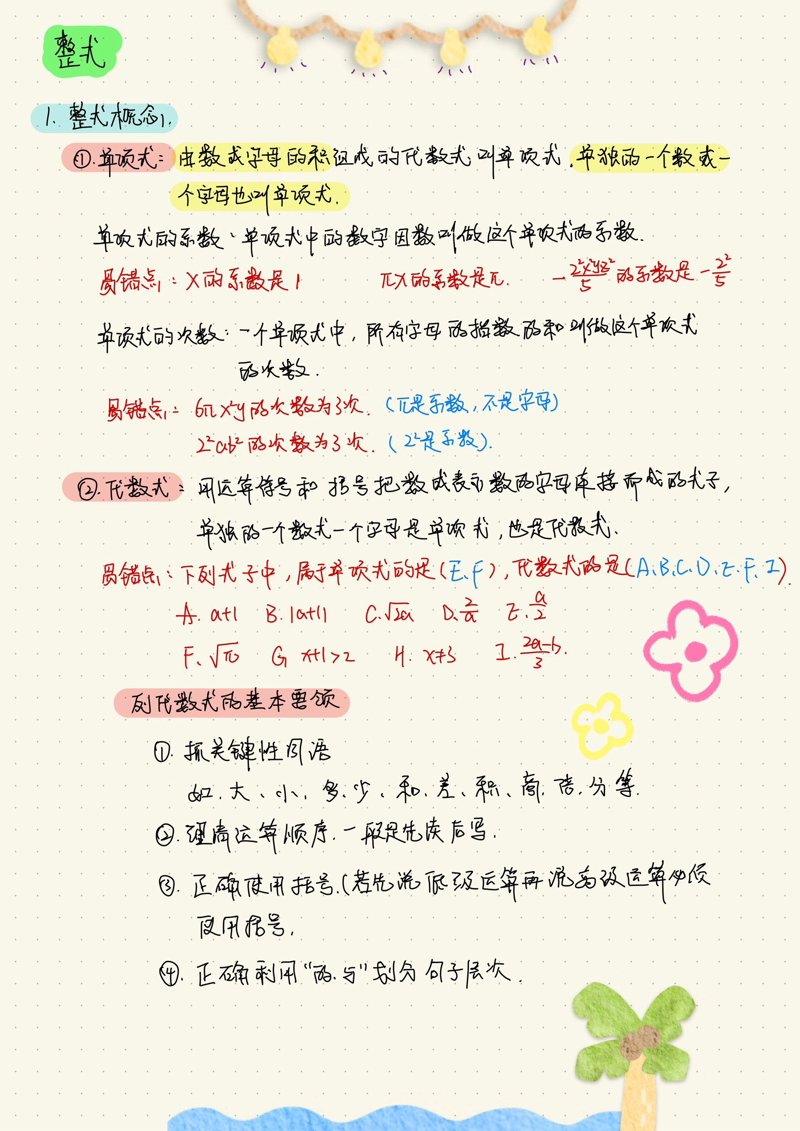 整式
1. 整式概念1.
①.单项式：由数或字母的积组成的代数式叫单项式.单独的一个数或一
个字母也叫单项式.
单项式的系数：单项式中的数字因数叫做这个单项式的系数.
易错点1：x的系数是1 πx的系数是π. -2²x³yz²/5的系数是-2²/5
单项式的次数：一个单项式中，所有字母的指数的和叫做这个单项式
的次数.
易错点1：6πx²y的次数为3次.（π是系数，不是字母）
2²ab²的次数为3次.（2²是系数）.
②.代数式：用运算符号和括号把数或表示数的字母连接而成的式子，
单独的一个数或一个字母是单项式，也是代数式.
易错点1：下列式子中，属于单项式的是（E、F），代数式的是（A、B、C、D、E、F、I）.
A. a+1 B. |a+1| C.√2a D.2/a E.a/2
F.√π G x+1>2 H. x≠3 I.2a-b/3.
列代数式的基本要领
①. 抓关键性词语
如.大、小、多、少、和、差、积、商.倍.分等.
②.理清运算顺序.一般是先读后写.
③. 正确使用括号.(若先说低级运算再说高级运算必须
使用括号.
④. 正确利用“的.与”划分句子层次.